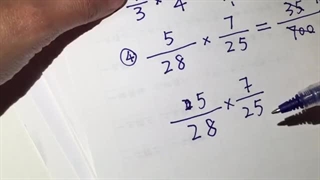 3 × 4
④ 5/28 × 7/25 = 35/700
5/28 × 7/25